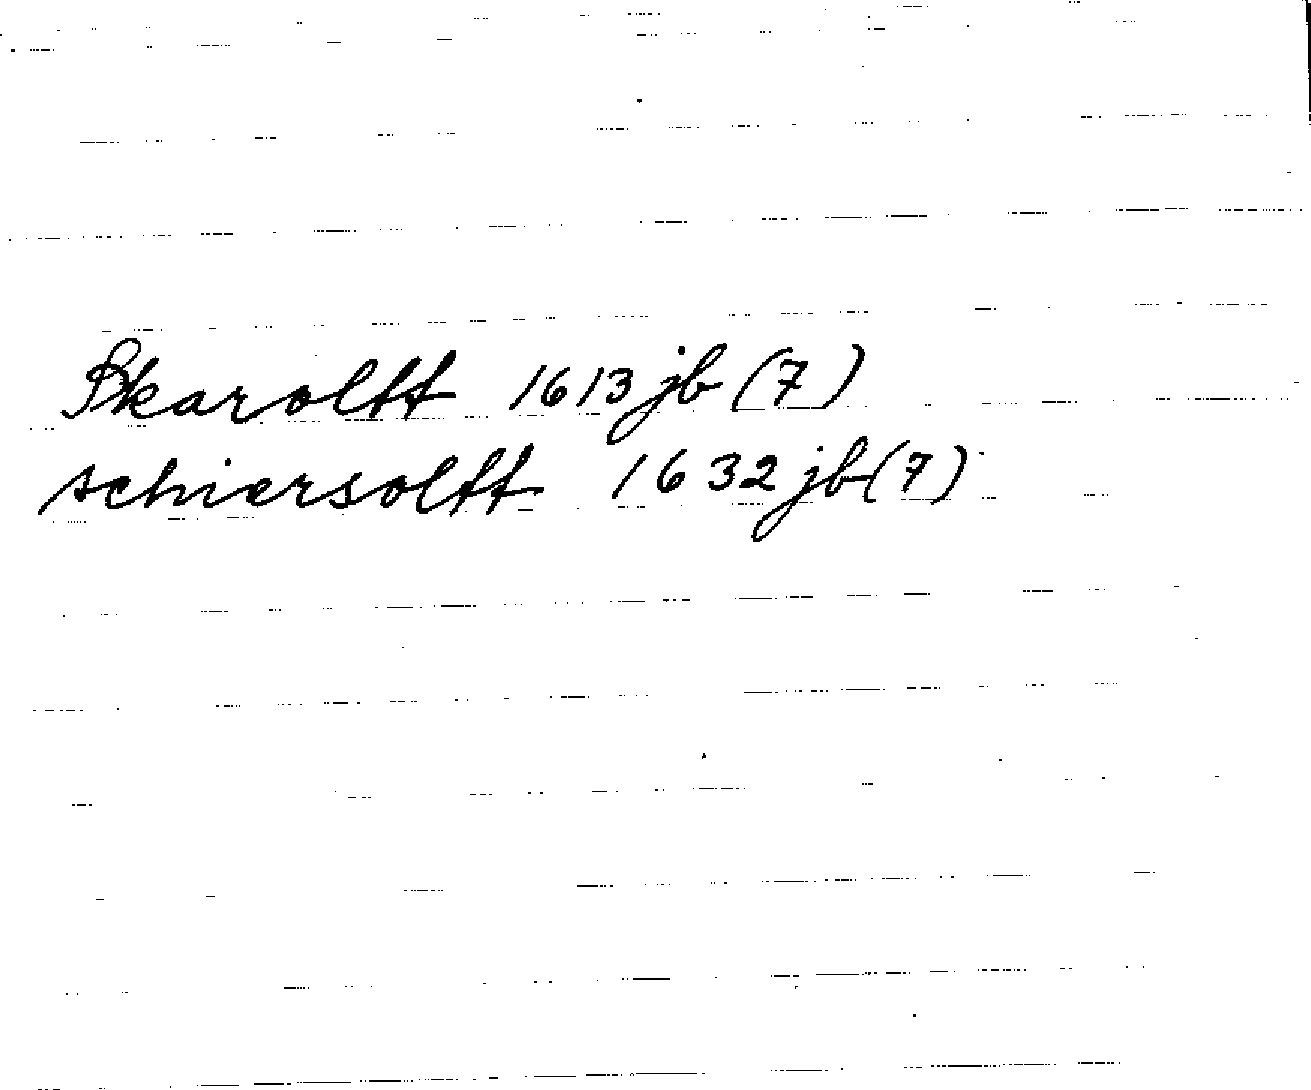 Skaroltt 1613 jb (7)
schiersoltt 1632 jb (7)